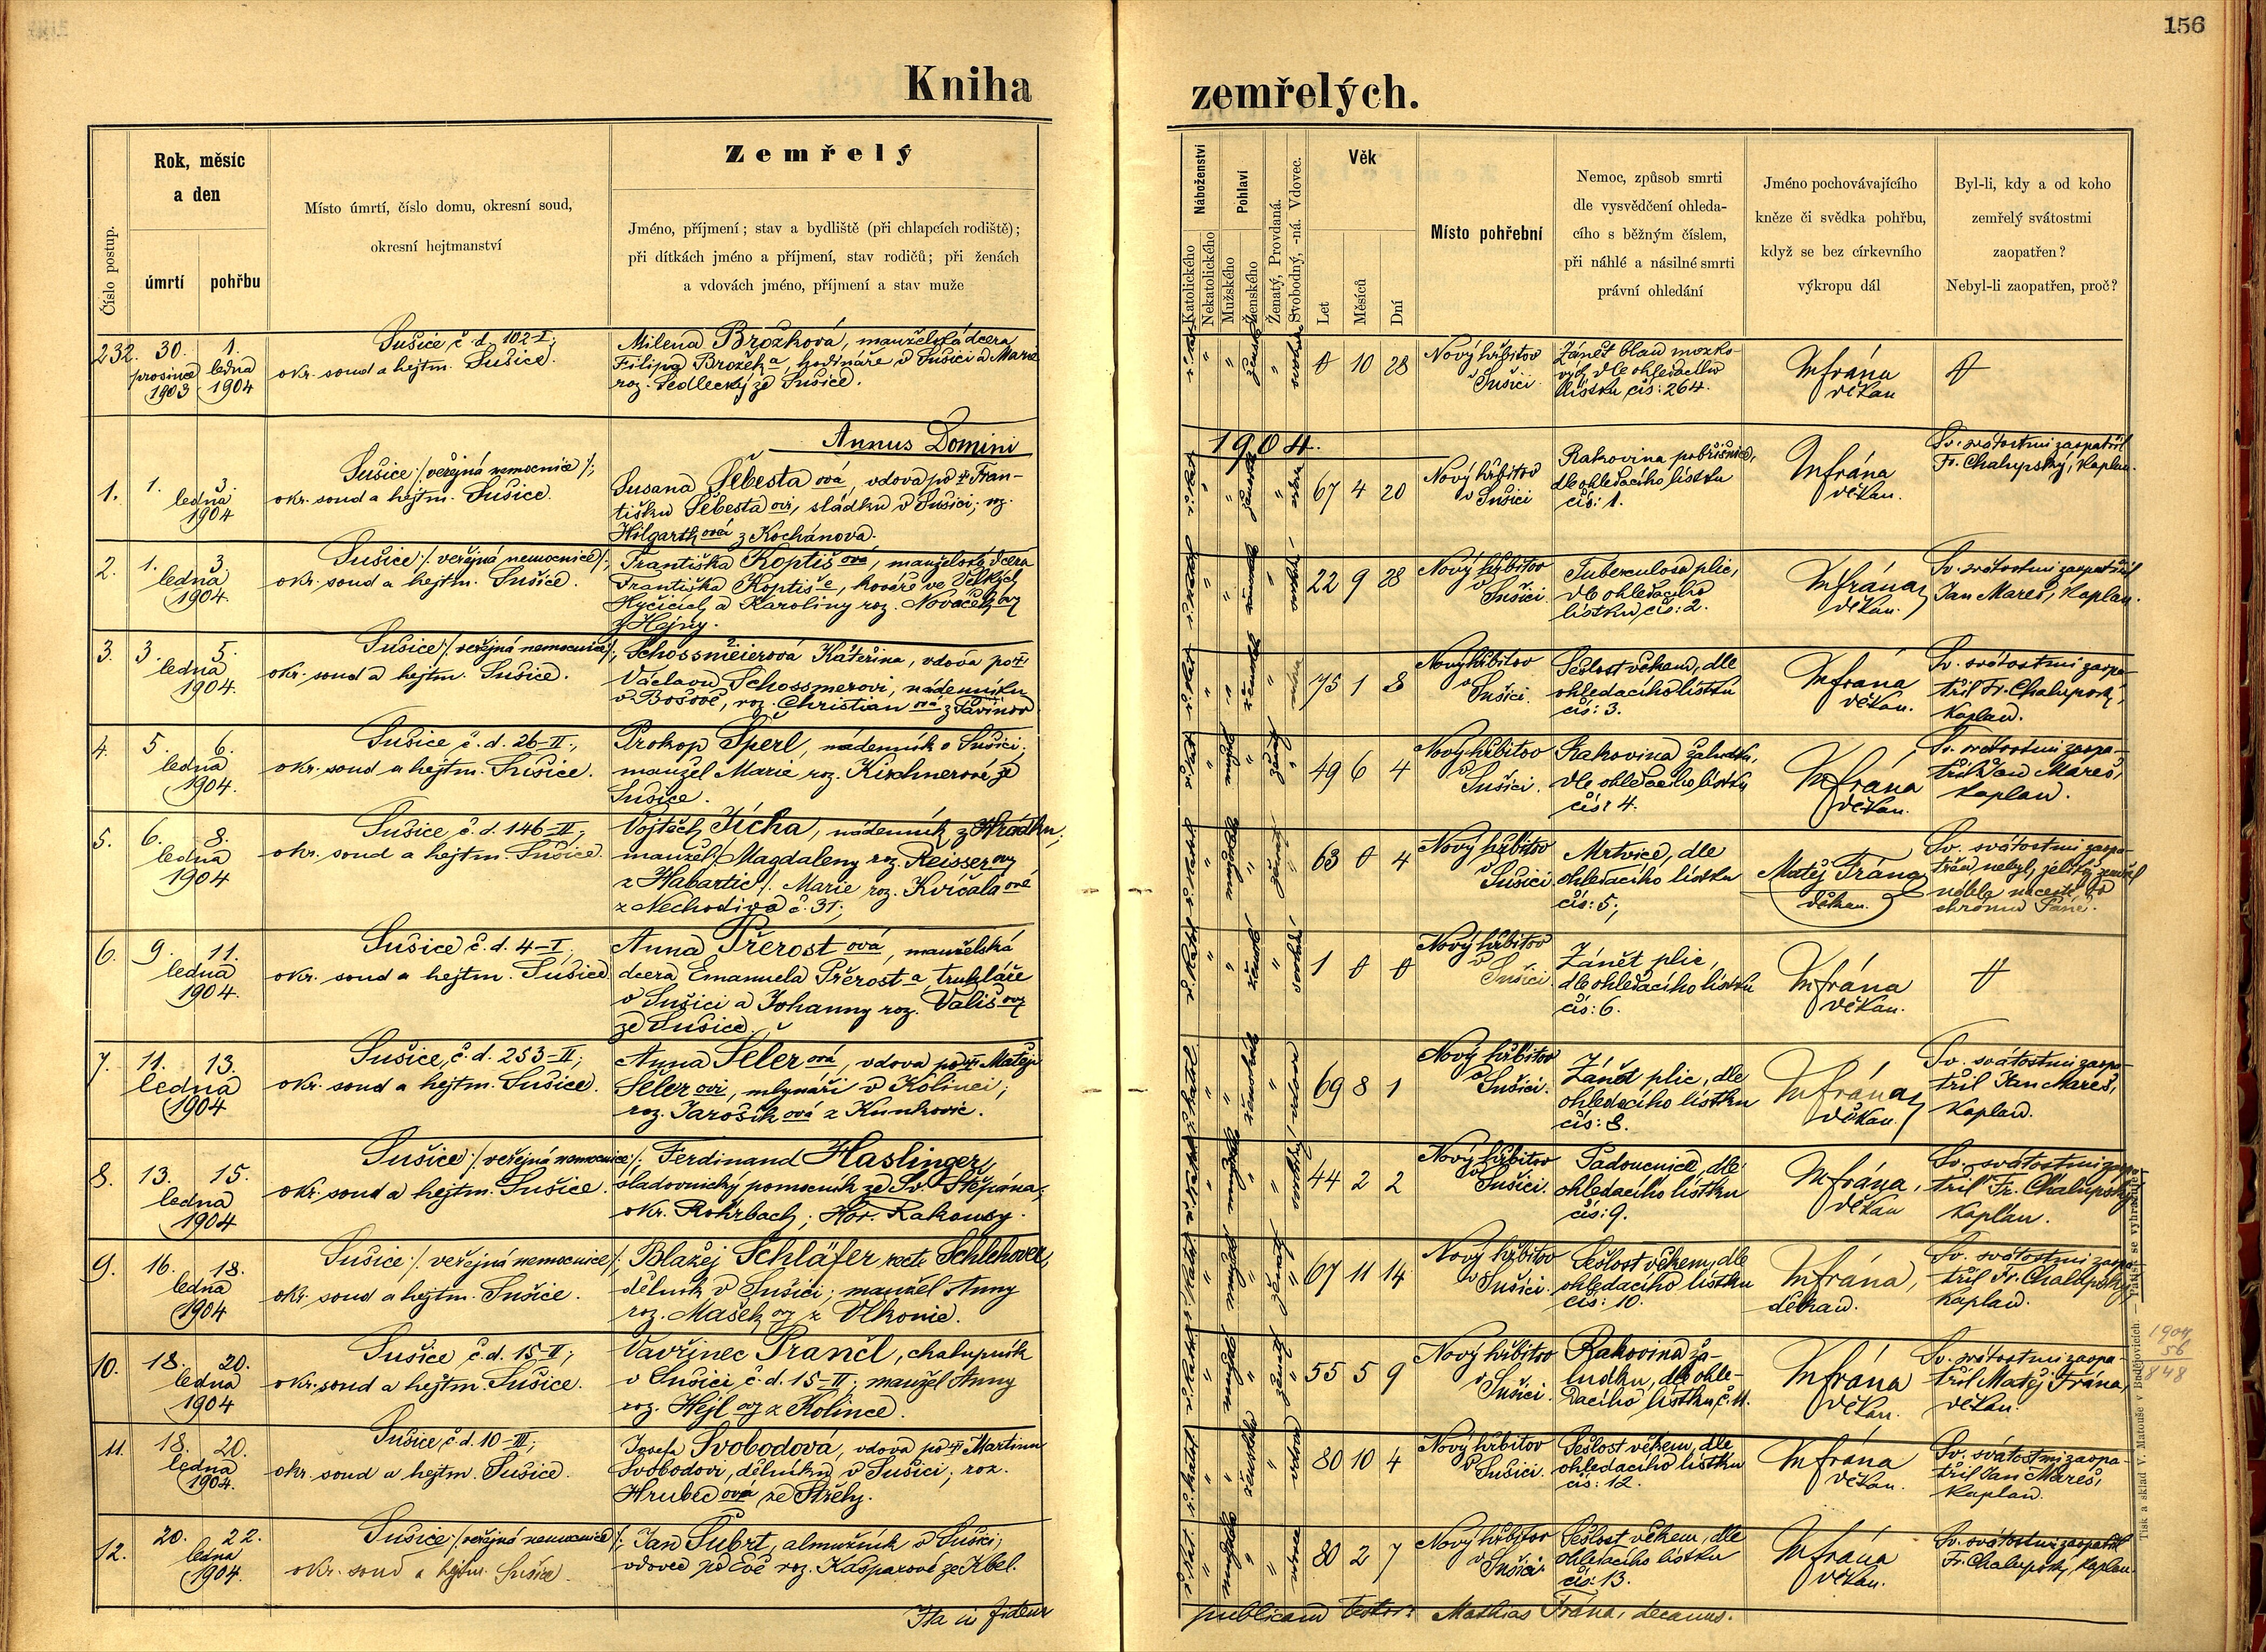 156
Kniha zemřelých.
Číslo postup.
Rok, měsíc
a den
úmrtí
pohřbu
Místo úmrtí, číslo domu, okresní soud,
okresní hejtmanství
Zemřelý
Jméno, příjmení; stav a bydliště (při chlapcích rodiště);
při dítkách jméno a příjmení, stav rodičů; při ženách
a vdovách jméno, příjmení a stav muže
Náboženství
Katolického
Nekatolického
Pohlaví
Mužského
Ženského
Ženatý, Provdaná.
Svobodný, -ná. Vdovec.
Věk
Let
Měsíců
Dní
Místo pohřební
Nemoc, způsob smrti
dle vysvědčení ohleda-
cího s běžným číslem,
při náhlé a násilné smrti
právní ohledání
Jméno pochovávajícího
kněze či svědka pohřbu,
když se bez církevního
výkropu dál
Byl-li, kdy a od koho
zemřelý svátostmi
zaopatřen?
Nebyl-li zaopatřen, proč?
232. 30. prosince 1903 1. ledna 1904
Sušice č. d. 102-I;
okr. soud a hejtm. Sušice.
Milena Brožková, manželská dcera
Filipa Brožka, hodináře v Sušici a Marie
roz. Sedlecký ze Sušice.
0 10 28
Nový hřbitov
v Sušici.
Zánět blan mozko-
vých, dle ohledacího
lístku čís: 264.
M Frána
děkan
0
Annus Domini 1904.
1. 1. 3. ledna 1904
Sušice /veřejná nemocnice/;
okr. soud a hejtm. Sušice.
Susana Šebestaová, vdova po † Fran-
tišku Šebestaovi, sládku v Sušici; roz.
Hilgarthová z Kochánova.
67 4 20
Nový hřbitov
v Sušici
Rakovina pobřišnice,
dle ohledacího lístku
čís: 1.
M Frána
děkan.
Sv. svátostmi zaopatřil
Fr. Chalupský, kaplan.
2. 1. 3. ledna 1904.
Sušice /veřejná nemocnice/;
okr. soud a hejtm. Sušice.
Františka Koptišová, manželská dcera
Františka Koptiše, kováře ve Velkých
Hyčicích a Karoliny roz. Nováčkovy
z Hejny.
22 9 28
Nový hřbitov
v Sušici.
Tuberculosa plic,
dle ohledacího
lístku čís: 2.
M Frána
děkan.
Sv. svátostmi zaopatřil
Jan Mareš, kaplan.
3. 3. 5. ledna 1904.
Sušice /veřejná nemocnice/;
okr. soud a hejtm. Sušice.
Schossmeierová Kateřina, vdova po †
Václavu Schossmerovi, nádenníku
roz. Christianová
75 1 8
Nový hřbitov
v Sušici.
Sešlost věkem, dle
ohledacího lístku
čís: 3.
M Frána
děkan.
Sv. svátostmi zaopa-
třil Fr. Chalupský,
kaplan.
4. 5. 6. ledna 1904.
Sušice č. d. 26-II;
okr. soud a hejtm. Sušice.
Prokop Šperl, nádenník v Sušici;
manžel Marie roz. Kirchnerové ze
Sušice.
49 6 4
Nový hřbitov
v Sušici.
Rakovina žaludku,
dle ohledacího lístku
čís: 4.
M Frána
děkan.
Sv. svátostmi zaopa-
třil Jan Mareš,
kaplan.
5. 6. 8. ledna 1904
Sušice č. d. 146-II;
okr. soud a hejtm. Sušice.
Vojtěch Jícha, nádenník z Hrádku;
manžel /Magdaleny roz. Reisserovy
z Habartic/. Marie roz. Kvíčalaové
z Nechodiva č. 31;
63 0 4
Nový hřbitov
v Sušici
Mrtvice, dle
ohledacího lístku
čís: 5;
Matěj Frána
děkan.
Sv. svátostmi zaopa-
třen nebyl, jelikož zemřel
náhle na cestě do
chrámu Páně.
6. 9. 11. ledna 1904.
Sušice č. d. 4-I;
okr. soud a hejtm. Sušice
Anna Přerostová, manželská
dcera Emanuela Přerosta, truhláře
v Sušici a Johanny roz. Vališovy
ze Sušice.
1 0 0
Nový hřbitov
v Sušici.
Zánět plic,
dle ohledacího lístku
čís: 6.
M Frána
děkan.
0
7. 11. 13. ledna 1904
Sušice, č. d. 253-II;
okr. soud a hejtm. Sušice.
Anna Šelerová, vdova po † Matěji
Šelerovi, mlynáři v Kolinci;
roz. Jarošíková z Kunkovic.
69 8 1
Nový hřbitov
v Sušici.
Zánět plic, dle
ohledacího lístku
čís: 8.
M Frána
děkan.
Sv. svátostmi zaopa-
třil Jan Mareš,
kaplan.
8. 13. 15. ledna 1904
Sušice /veřejná nemocnice/;
okr. soud a hejtm. Sušice.
Ferdinand Haslinger,
sladovnický pomocník ze Sv. Štěpána,
okr. Rohrbach; Hor. Rakousy.
44 2 2
Nový hřbitov
v Sušici.
Padoucnice, dle
ohledacího lístku
čís: 9.
M Frána,
děkan
Sv. svátostmi zaopa-
třil Fr. Chalupský,
kaplan.
9. 16. 18. ledna 1904
Sušice /veřejná nemocnice/;
okr. soud a hejtm. Sušice.
Blažej Schläfer, recte Schlehover,
dělník v Sušici; manžel Anny
roz. Mašekovy z Vlkonic.
67 11 14
Nový hřbitov
v Sušici.
Sešlost věkem, dle
ohledacího lístku
čís: 10.
M Frána,
děkan.
Sv. svátostmi zaopa-
třil Fr. Chalupský,
kaplan.
10. 18. 20. ledna 1904
Sušice č. d. 15-II;
okr. soud a hejtm. Sušice.
Vavřinec Prančl, chalupník
v Sušici č. d. 15-II; manžel Anny
roz. Hejlovy z Kolince.
55 5 9
Nový hřbitov
v Sušici.
Rakovina ža-
ludku, dle ohle-
dacího lístku, č. 11.
M Frána
děkan.
Sv. svátostmi zaopa-
třil Matěj Frána,
děkan.
1904
56
1848
11. 18. 20. ledna 1904.
Sušice, č. d. 10-III;
okr. soud a hejtm. Sušice.
Josefa Svobodová, vdova po † Martinu
Svobodovi, dělníku v Sušici; roz.
Hrubecová ze Střely.
80 10 4
Nový hřbitov
v Sušici.
Sešlost věkem, dle
ohledacího lístku
čís: 12.
M Frána
děkan.
Sv. svátostmi zaopa-
třil Jan Mareš,
kaplan.
12. 20. 22. ledna 1904.
Sušice /veřejná nemocnice/;
okr. soud a hejtm. Sušice.
Jan Šubrt, almužník v Sušici,
vdovec po Evě roz. Kašparové ze Kbel.
80 2 7
Nový hřbitov
v Sušici
Sešlost věkem, dle
ohledacího lístku
čís: 13.
M Frána
děkan.
Sv. svátostmi zaopatřil
Fr. Chalupský, kaplan.
Ita in fidem publicam testor: Mathias Frána, decanus.
Tisk a sklad V. Matouše v Budějovicích. — Patisk se vyhražuje.